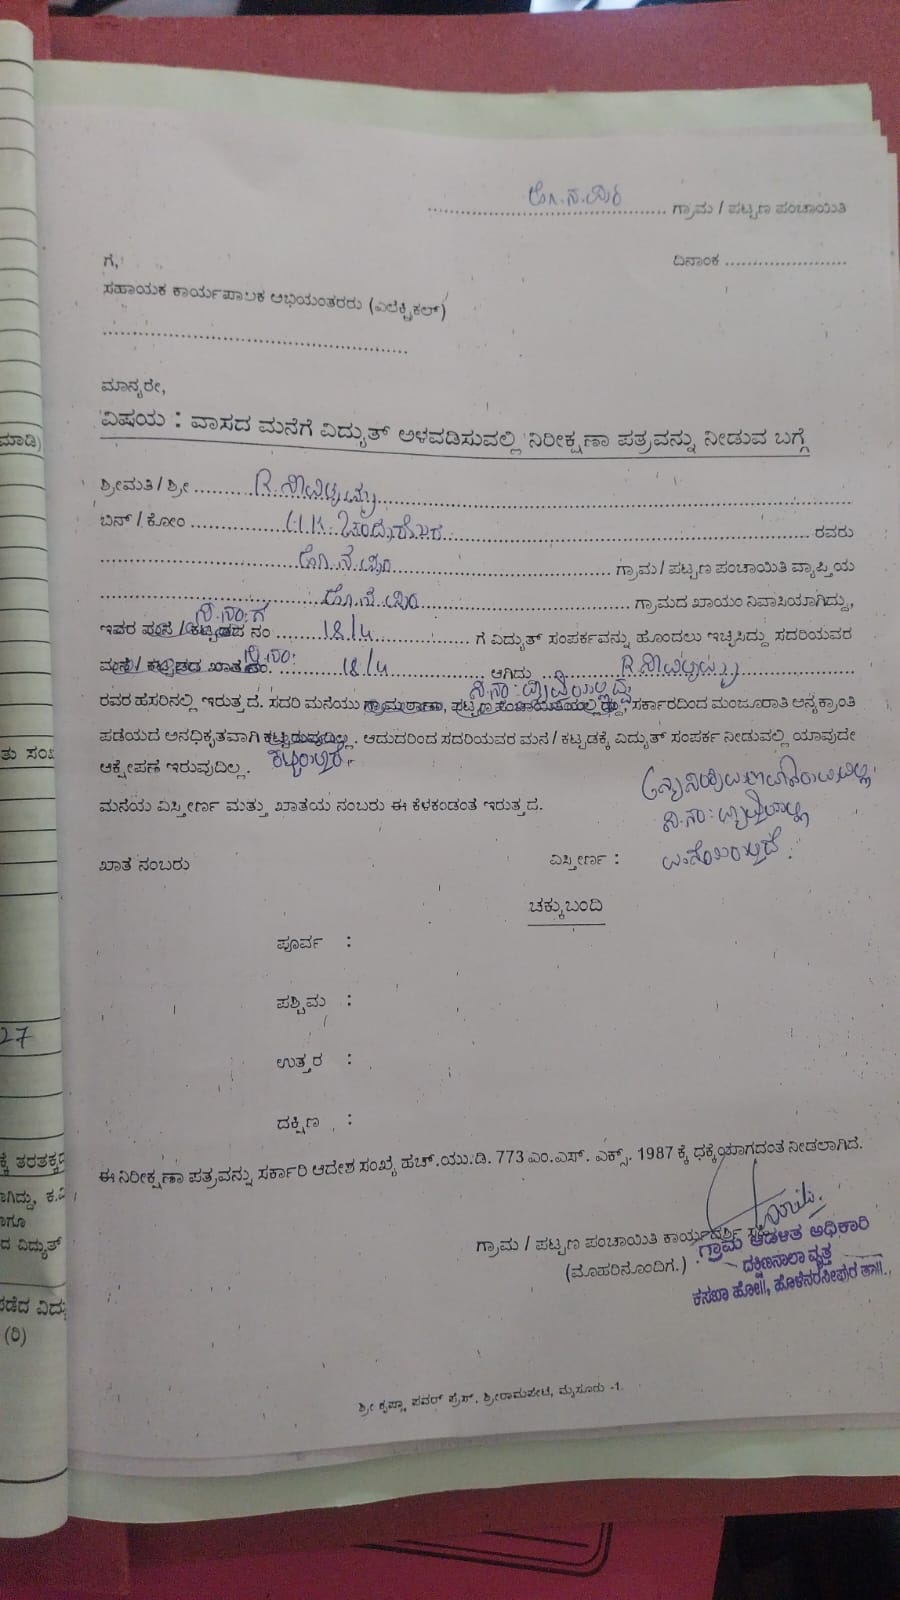 ಹೊ.ನ.ಪುರ ಗ್ರಾಮ / ಪಟ್ಟಣ ಪಂಚಾಯಿತಿ
ಗೆ, ದಿನಾಂಕ
ಸಹಾಯಕ ಕಾರ್ಯಪಾಲಕ ಅಭಿಯಂತರರು (ಎಲೆಕ್ಟ್ರಿಕಲ್)
ಮಾನ್ಯರೇ,
ವಿಷಯ : ವಾಸದ ಮನೆಗೆ ವಿದ್ಯುತ್ ಅಳವಡಿಸುವಲ್ಲಿ ನಿರೀಕ್ಷಣಾ ಪತ್ರವನ್ನು ನೀಡುವ ಬಗ್ಗೆ
ಶ್ರೀಮತಿ / ಶ್ರೀ R.
ಬಿನ್ / ಕೋಂ H.K. ಚಂದ್ರಶೇಖರ ರವರು
ಹೊ.ನ.ಪುರ ಗ್ರಾಮ / ಪಟ್ಟಣ ಪಂಚಾಯಿತಿ ವ್ಯಾಪ್ತಿಯ
ಹೊ.ನ.ಪುರ ಗ್ರಾಮದ ಖಾಯಂ ನಿವಾಸಿಯಾಗಿದ್ದು,
ಇವರ ಮನೆ / ಕಟ್ಟಡದ ನಂ 18/4 ಗೆ ವಿದ್ಯುತ್ ಸಂಪರ್ಕವನ್ನು ಹೊಂದಲು ಇಚ್ಛಿಸಿದ್ದು ಸದರಿಯವರ
ಮನೆ / ಕಟ್ಟಡದ ಖಾತೆ ನಂ. 18/4 ಆಗಿದ್ದು R.
ರವರ ಹೆಸರಿನಲ್ಲಿ ಇರುತ್ತದೆ. ಸದರಿ ಮನೆಯು ಗ್ರಾಮಠಾಣಾ, ಪಟ್ಟಣ ಪಂಚಾಯಿತಿಯಲ್ಲಿದ್ದು, ಸರ್ಕಾರದಿಂದ ಮಂಜೂರಾತಿ ಅನ್ಯಕ್ರಾಂತಿ
ಪಡೆಯದೆ ಅನಧಿಕೃತವಾಗಿ ಕಟ್ಟಿರುವುದಿಲ್ಲ. ಆದುದರಿಂದ ಸದರಿಯವರ ಮನೆ / ಕಟ್ಟಡಕ್ಕೆ ವಿದ್ಯುತ್ ಸಂಪರ್ಕ ನೀಡುವಲ್ಲಿ ಯಾವುದೇ
ಆಕ್ಷೇಪಣೆ ಇರುವುದಿಲ್ಲ.
ಮನೆಯ ವಿಸ್ತೀರ್ಣ ಮತ್ತು ಖಾತೆಯ ನಂಬರು ಈ ಕೆಳಕಂಡಂತೆ ಇರುತ್ತದೆ.
ಖಾತೆ ನಂಬರು ವಿಸ್ತೀರ್ಣ :
ಚಕ್ಕುಬಂದಿ
ಪೂರ್ವ :
ಪಶ್ಚಿಮ :
ಉತ್ತರ :
ದಕ್ಷಿಣ :
ಈ ನಿರೀಕ್ಷಣಾ ಪತ್ರವನ್ನು ಸರ್ಕಾರಿ ಆದೇಶ ಸಂಖ್ಯೆ ಹೆಚ್.ಯು.ಡಿ. 773 ಎಂ.ಎಸ್. ಎಕ್ಸ್. 1987 ಕ್ಕೆ ಧಕ್ಕೆಯಾಗದಂತೆ ನೀಡಲಾಗಿದೆ.
ಗ್ರಾಮ / ಪಟ್ಟಣ ಪಂಚಾಯಿತಿ ಕಾರ್ಯದರ್ಶಿ ಸಹಿ
(ಮೊಹರಿನೊಂದಿಗೆ.)
ಗ್ರಾಮ ಆಡಳಿತ ಅಧಿಕಾರಿ
ದಕ್ಷಿಣನಾಲಾ ವೃತ್ತ
ಕಸಬಾ ಹೋ||, ಹೊಳೆನರಸೀಪುರ ತಾ||.
ಶ್ರೀ ಕೃಷ್ಣಾ ಪವರ್ ಪ್ರೆಸ್, ಶ್ರೀರಾಮಪೇಟೆ, ಮೈಸೂರು -1.